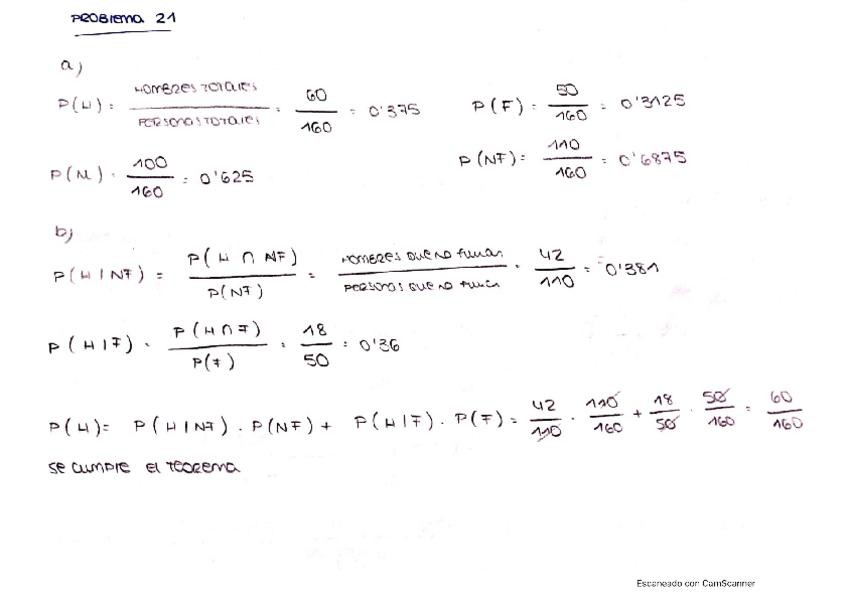 PROBLEMA 21
a)
P(H) = HOMBRES TOTALES / PERSONAS TOTALES = 60/160 = 0'375 P(F) = 50/160 = 0'3125
P(M) = 100/160 = 0'625 P(NF) = 110/160 = 0'6875
b)
P(H|NF) = P(H ∩ NF) / P(NF) = HOMBRES QUE NO FUMAN / PERSONAS QUE NO FUMAN = 42/110 = 0'381
P(H|F) = P(H∩F) / P(F) = 18/50 = 0'36
P(H) = P(H|NF) · P(NF) + P(H|F) · P(F) = 42/110 · 110/160 + 18/50 · 50/160 = 60/160
SE CUMPLE EL TEOREMA
Escaneado con CamScanner